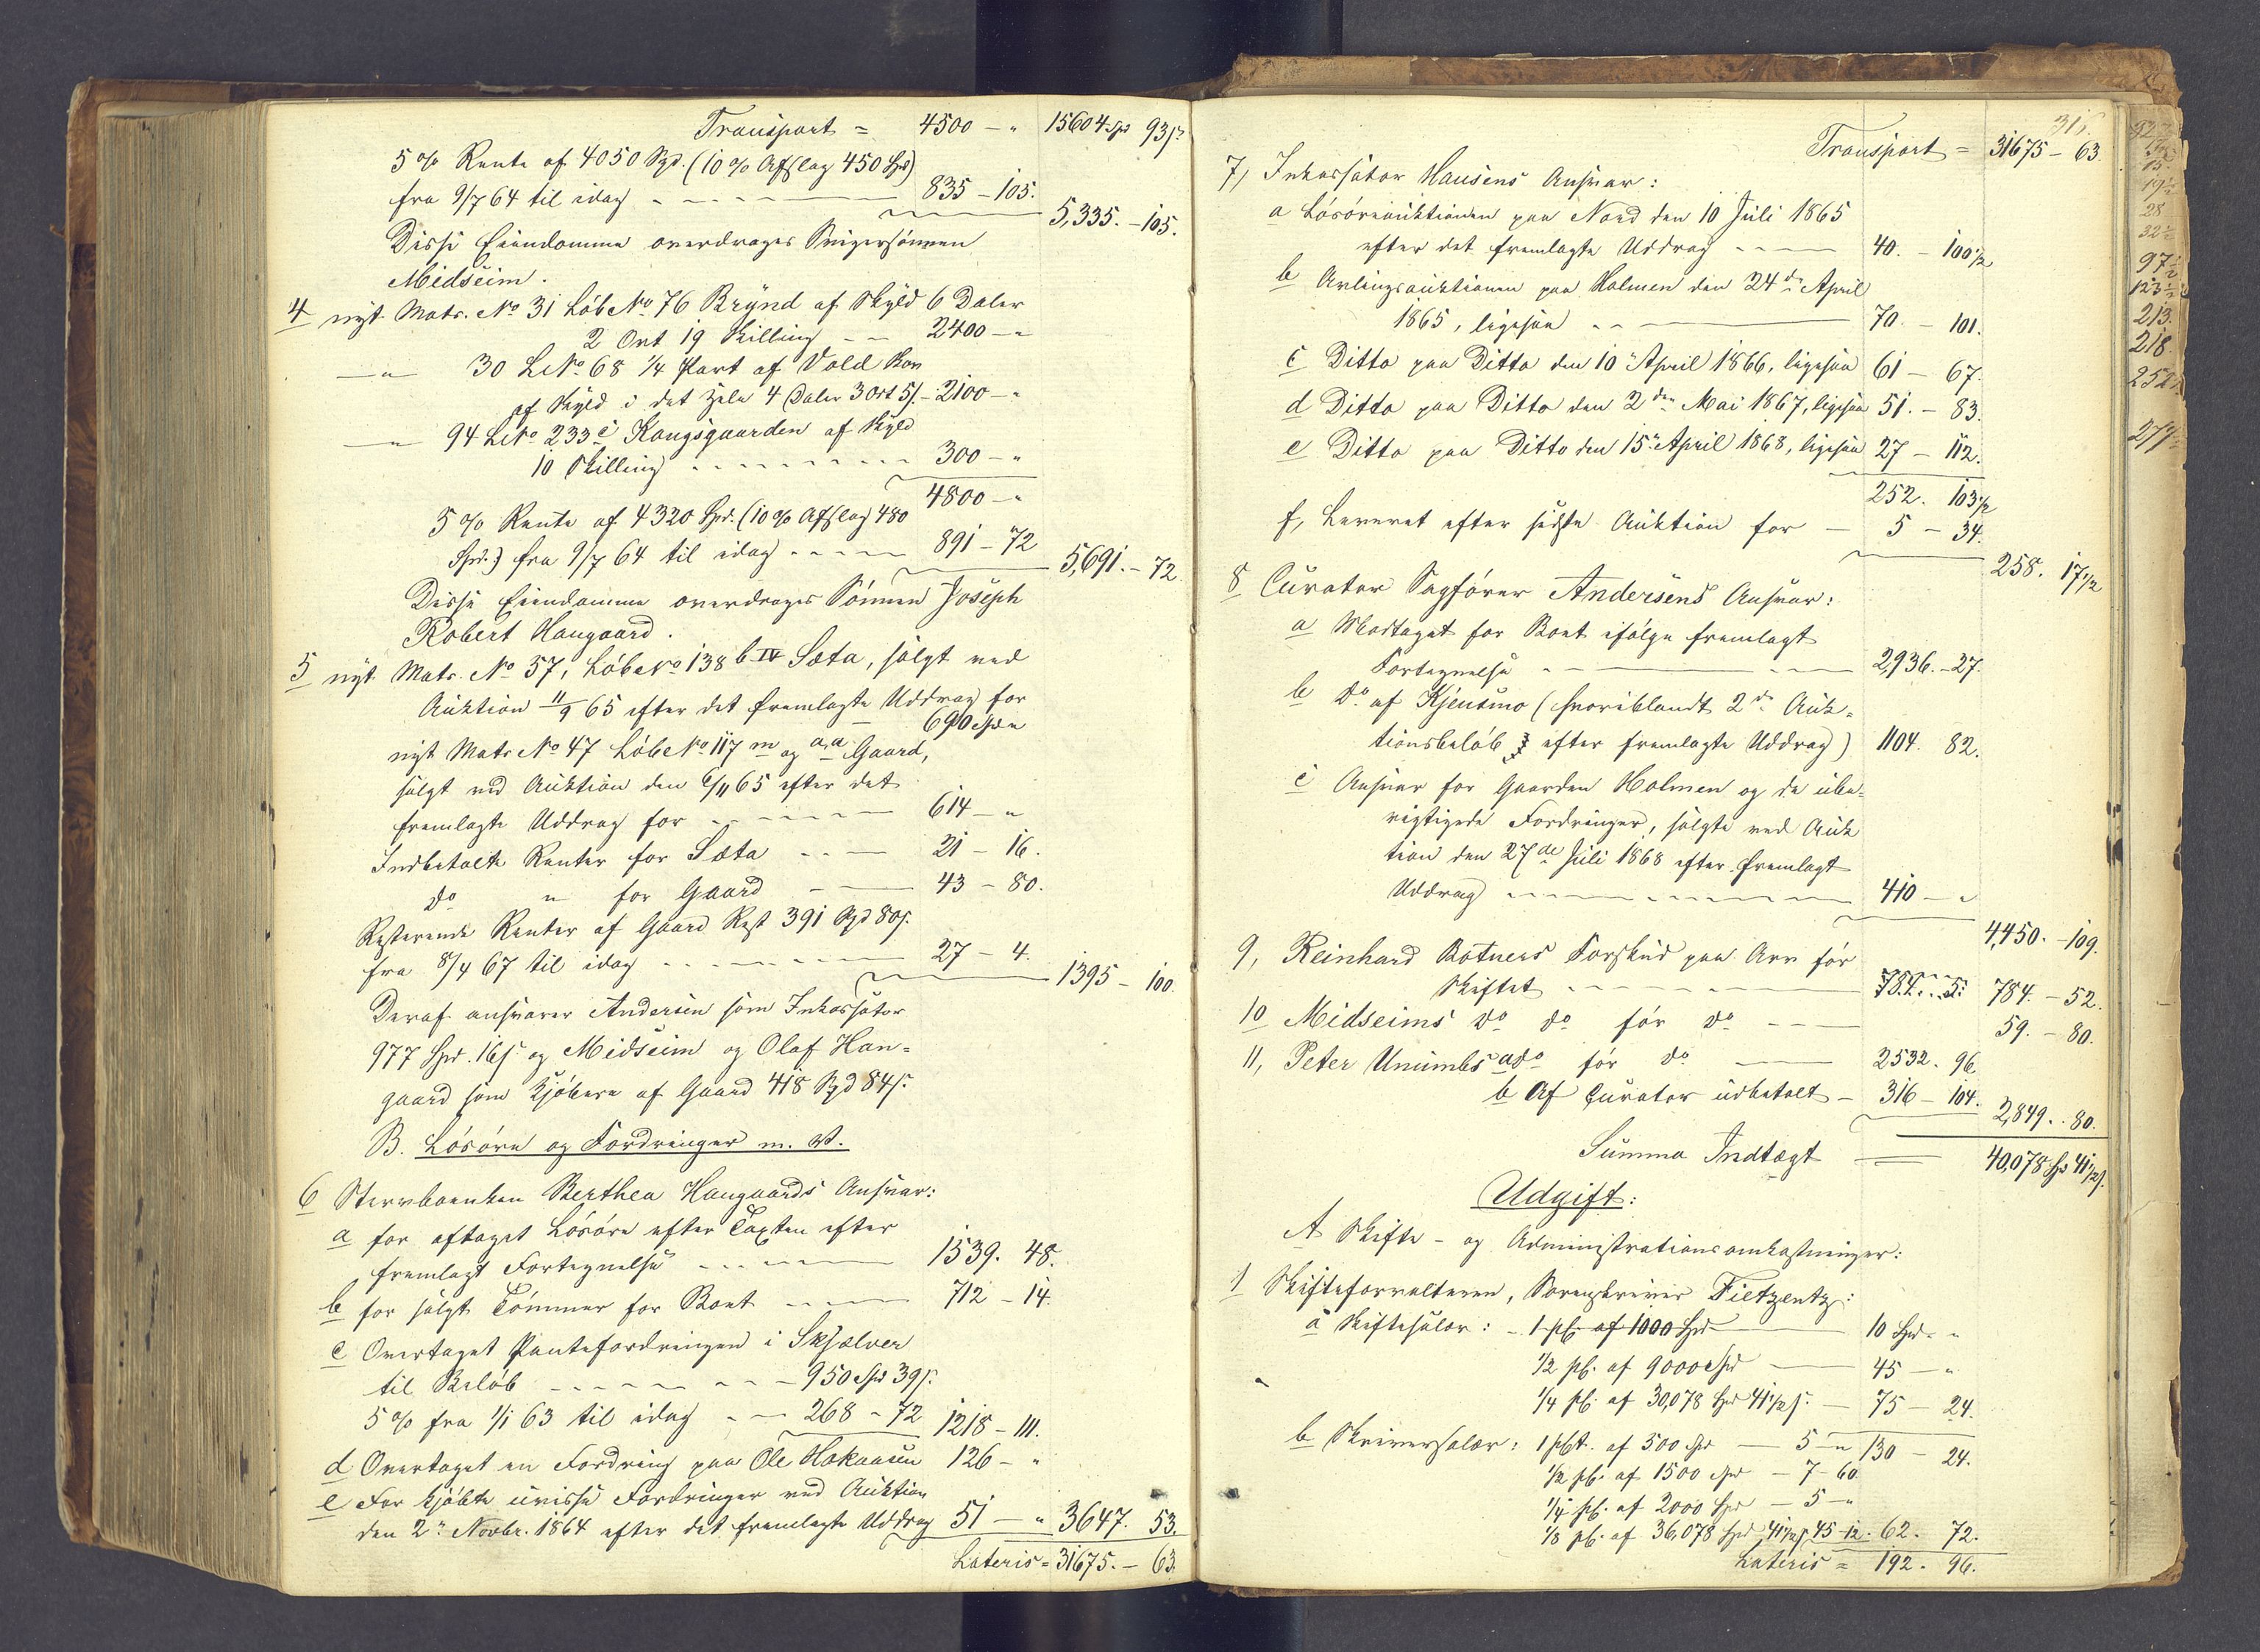 Transport = 4500 - " 15604 Spd 93 s.
5 % Rente af 4050 Spd. (10 % Afslag 450 Spd)
fra 9/7 64 til idag - - - - 835 - 105.
5,335. - 105.
Disse Eiendomme overdrages Svigersønnen
Midseim.
4 nyt Matr. No 31 Løbe No 76 Brynd af Skyld 6 Daler
2 Ort 19 Skilling - - 2400 - "
- " 30 L No 68 1/4 Part af Vold Kon
af Skyld i det Hele 4 Daler 3 Ort 5 s. - 2100 - "
- " 94 L No 233 c Kongsgaarden af Skyld
10 Skilling - - - - - 300 - "
4800 - "
5 % Rente af 4320 Spd. (10 % Afslag 480
Spd.) fra 9/7 64 til idag - - - - 891 - 72
5,691. - 72.
Disse Eiendomme overdrages Sønnen Joseph
Robert Haugaard.
5 nyt Matr. No 57, Løbe No 138 b IV Sæta, solgt ved
Auktion 11/9 65 efter det fremlagte Uddrag for
690 Spd "
nyt Matr No 47 Løbe No 117 m og a,a Gaard,
solgt ved Auktion den 6/11 65 efter det
fremlagte Uddrag for - - - - - 614 - "
Indbetalte Renter for Sæta - - - 21 - 16.
do " for Gaard - - 43 - 80.
Resterende Renter af Gaard Rest 391 Spd 80 s.
fra 8/4 67 til idag - - - - - 27 - 4.
1395 - 100.
Deraf ansvarer Andersen som Inkassator
977 Spd. 16 s. og Midseim og Olaf Hau-
gaard som Kjøbere af Gaard 418 Spd 84 s.
B. Løsøre og Fordringer m. V.
6 Stervboenken Berthea Haugaards Ansvar:
a for aftaget Løsøre efter Taxten efter
fremlagt Fortegnelse - - - - 1539. 48.
b for solgt Tømmer for Boet - - - 712 - 14.
c Overtaget Pantefordringen i Skjælver
til Beløb - - - - - - 950 Spd 39 s.
5 % fra 1/1 63 til idag - - 268 - 72 1218 - 111.
d Overtaget en Fordring paa Ole Hakansen 126 - "
e For kjøbte uvisse Fordringer ved Auktion
den 2n Novbr. 1864 efter det fremlagte Uddrag 51 - " 3647. 53.
Lateris = 31675. - 63.
316.
Transport = 31675 - 63.
7, Inkassator Hansens Ansvar:
a Løsøreauktionen paa Nord den 10 Juli 1865
efter det fremlagte Uddrag - - - 40. - 100 1/2
b Avlingsauktionen paa Holmen den 24de April
1865, ligesaa - - - 70. - 101.
c Ditto paa Ditto den 10n April 1866, ligesaa 61 - 67.
d Ditto paa Ditto den 2den Mai 1867, ligesaa 51. - 83.
e Ditto paa Ditto den 15n April 1868, ligesaa 27 - 112.
252. 103 1/2
f, Leveret efter sidste Auktion for - 5 - 34.
258. 17 1/2
8 Curator Sagfører Andersens Ansvar:
a Modtaget for Boet ifølge fremlagt
Fortegnelse - - - - 2,936. - 27.
b Do af Kjensmo (hvoriblandt 2de Auk-
tionsbeløb efter fremlagte Uddrag) 1104. 82.
c Ansvar for Gaarden Holmen og de ube-
rigtigede Fordringer, solgte ved Auk
tion den 27de Juli 1868 efter fremlagt
Uddrag - - - - - 410 - "
4,450. - 109.
9, Reinhard Botners Forskud paa Arv før
Skiftet - - - - - 784. 52. 784. - 52.
10 Midseims do do før do - - - 59. - 80.
11, Peter Unumbs a do før do - - 2532. 96.
b Af Curator udbetalt - 316 - 104. 2,849. . 80.
Summa Indtægt = 40,078 Spd 41 1/2 s.
Udgift:
A Skifte- og Administrationsomkostninger:
1 Skifteforvalteren, Sorenskriver Fietzentz:
a Skiftesalær: - 1 pCt. af 1000 Spd - 10 Spd - "
1/2 pCt. af 9000 Spd - 45 - "
1/4 pCt. af 30,078 Spd 41 1/2 s. - 75 - 24.
130 - 24.
b Skriversalær: 1 pCt. af 500 Spd - 5 - "
1/2 pCt. af 1500 Spd - 7 - 60
1/4 pCt. af 2000 Spd - 5 - "
1/8 pCt. af 36,078 Spd 41 1/2 s. 45 - 12. 62. 72.
Lateris = 192. 96.